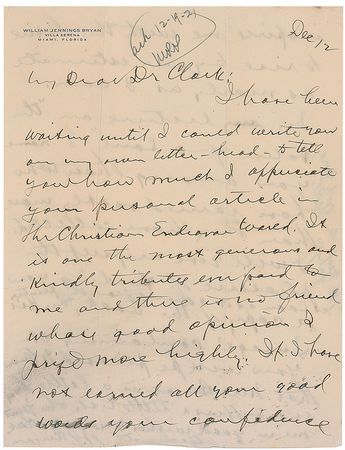 WILLIAM JENNINGS BRYAN
VILLA SERENA
MIAMI, FLORIDA
12-19-21
Dec 12
My Dear Dr Clark;
I have been
waiting until I could write you
on my own letter-head - to tell
you how much I appreciate
your personal article in
the Christian Endeavor World. It
is one the most generous and
kindly tributes ever paid to
me and there is no friend
whose good opinion I
prize more highly. If I have
not earned all your good
words your confidence